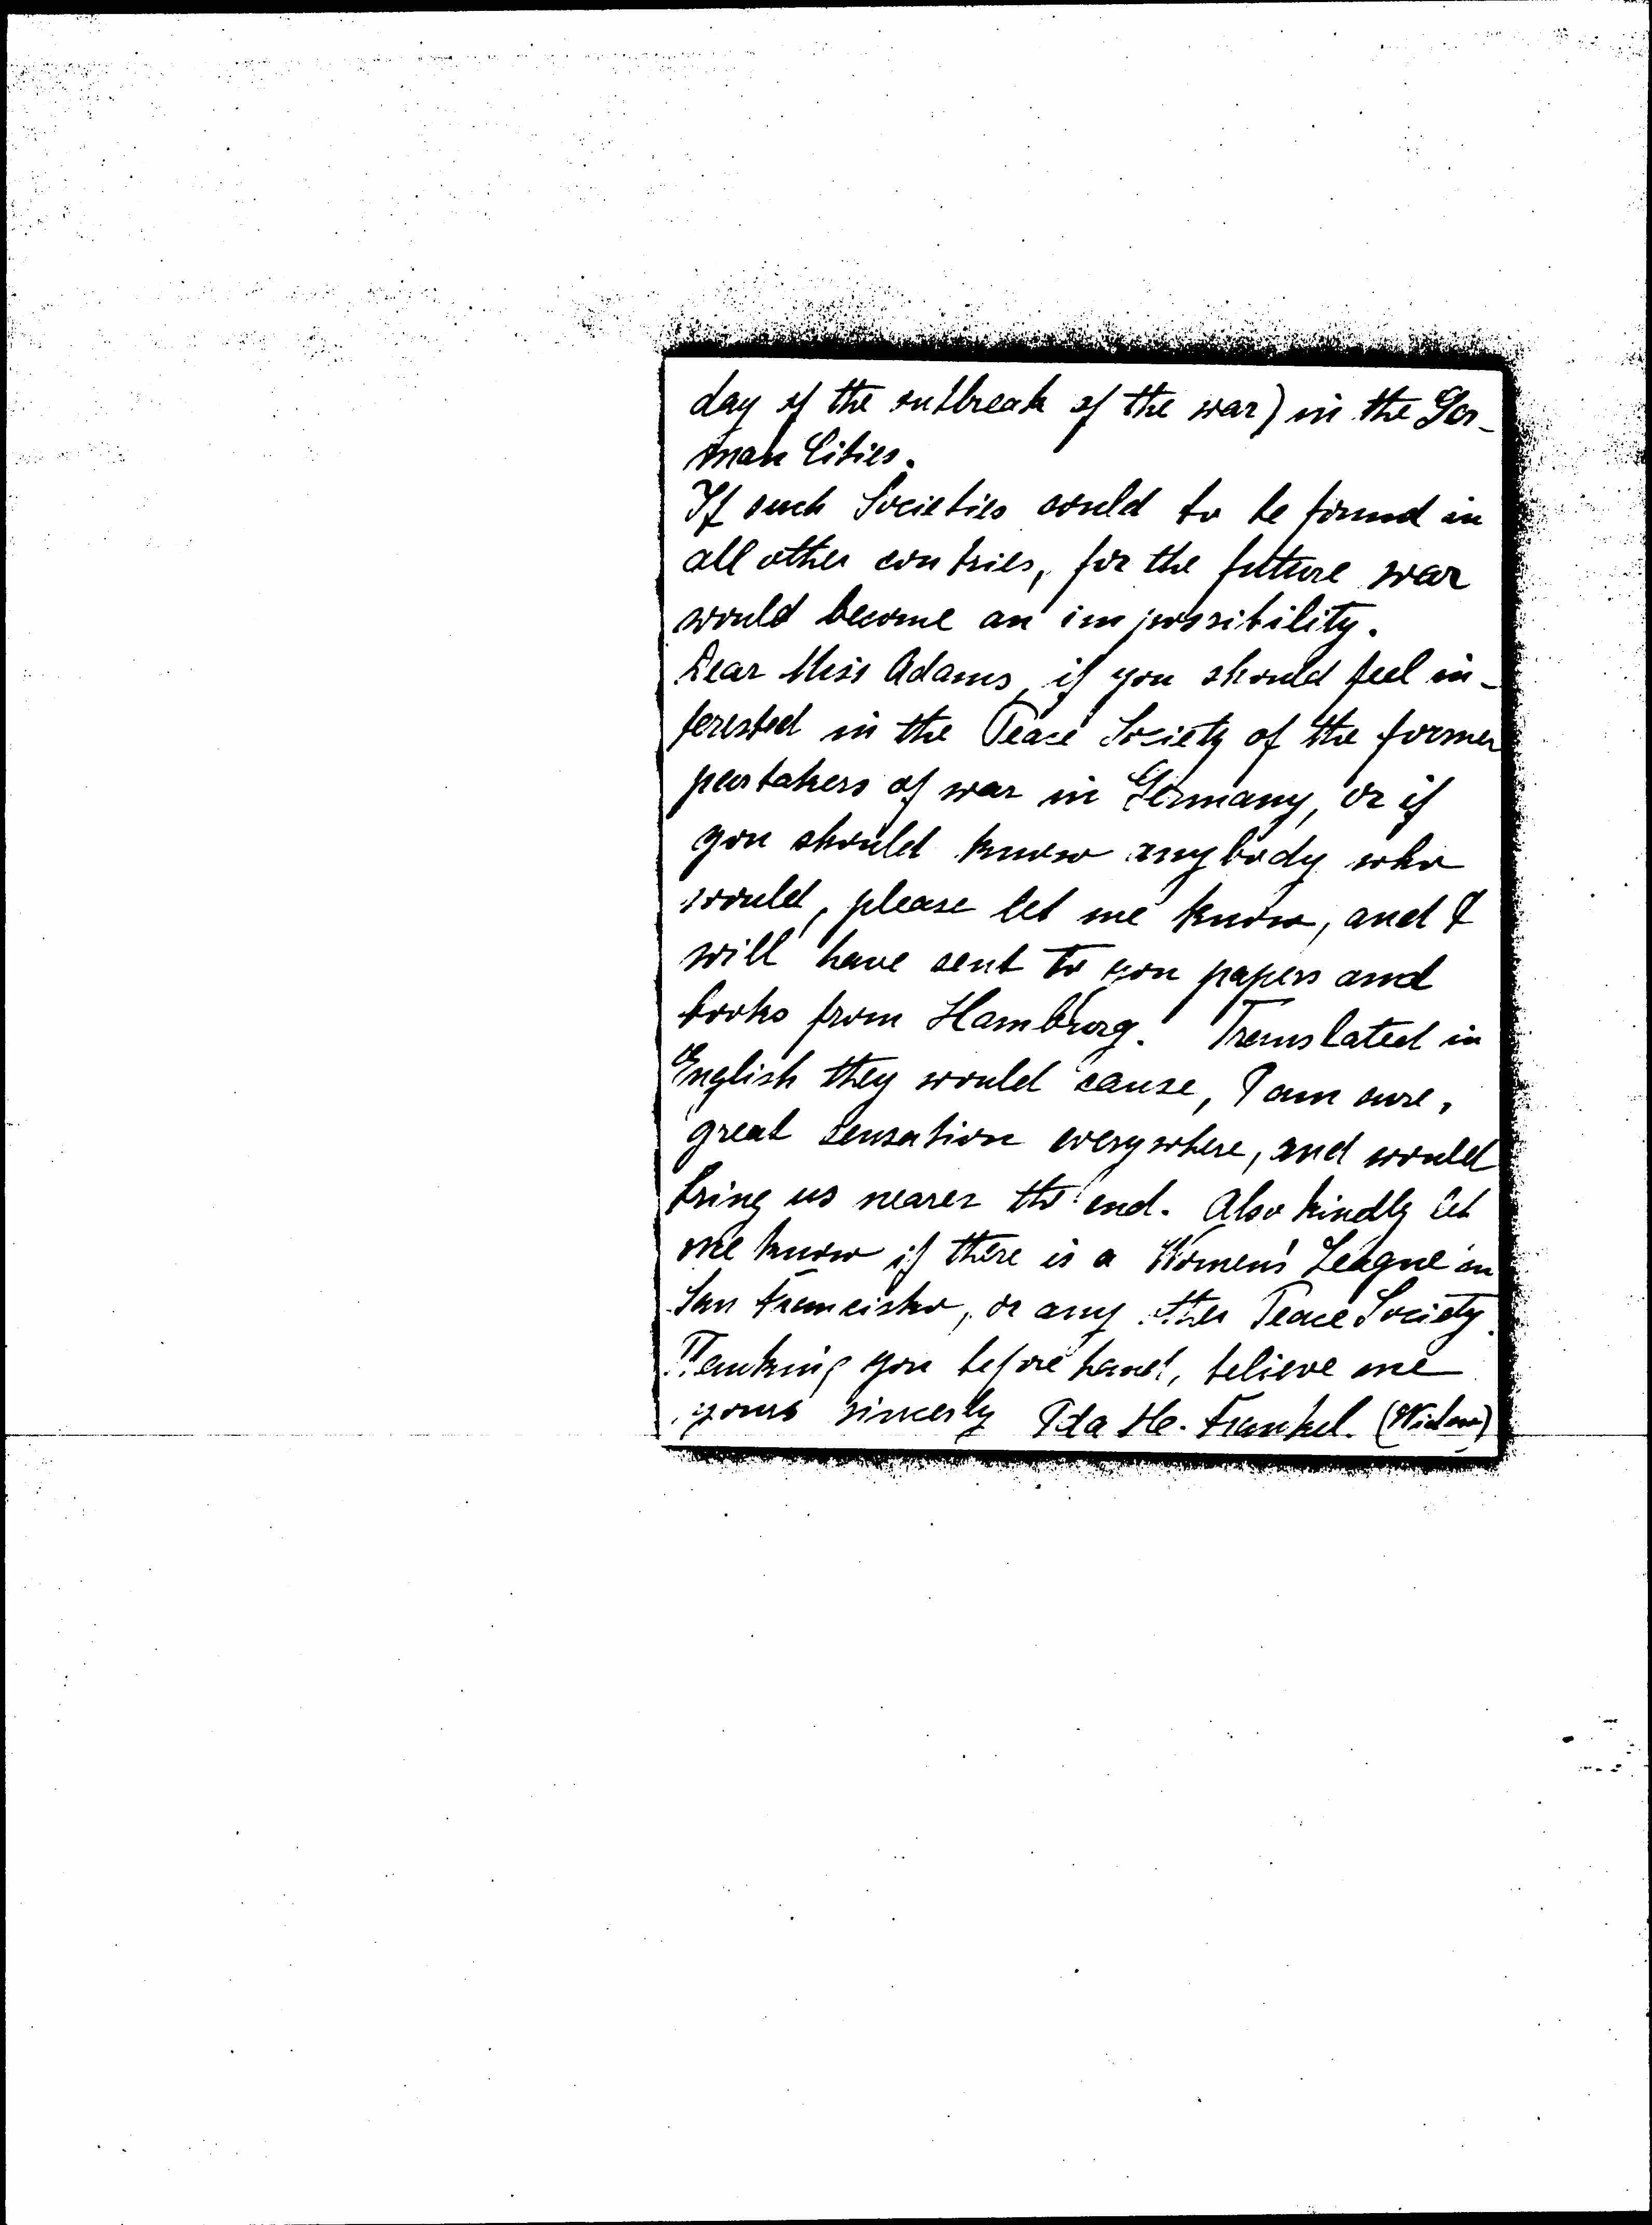 day of the outbreak of the war) in the Ger-
man Cities.
If such Societies could to be found in
all other contries, for the future war
would become an impossibility.
Dear Miss Adams, if you should feel in-
terested in the Peace Society of the former
partakers of war in Germany, or if
you should know anybody who
would, please let me know, and I
will have sent to you papers and
books from Hamburg. Translated in
English they would cause, I am sure,
great sensation everywhere, and would
bring us nearer the end. Also kindly let
me know if there is a Women's League in
San Francisko, or any other Peace Society.
Thanking you before hand, believe me
yours sincerly Ida He. Frankel. (Widow)